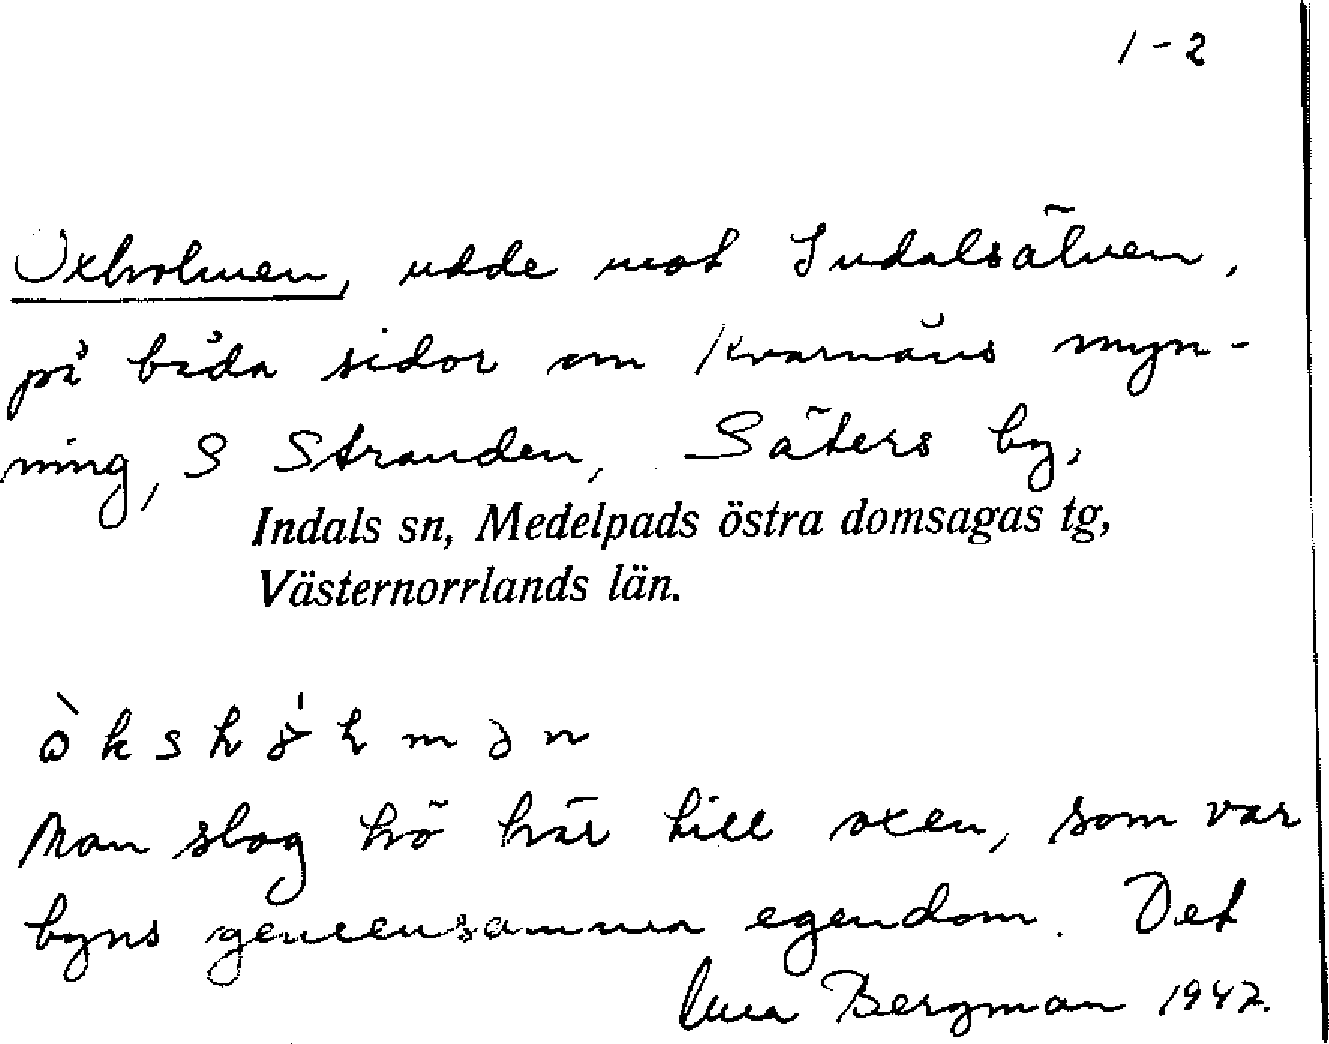 1-2
Oxholmen, udde mot Indalsälven,
på båda sidor om Kvarnåns myn-
ning, S Stranden, Säters by,
Indals sn, Medelpads östra domsagas tg,
Västernorrlands län.
Man slog hö här till oxen, som var
byns gemensamma egendom. Det
Bergman 1947.